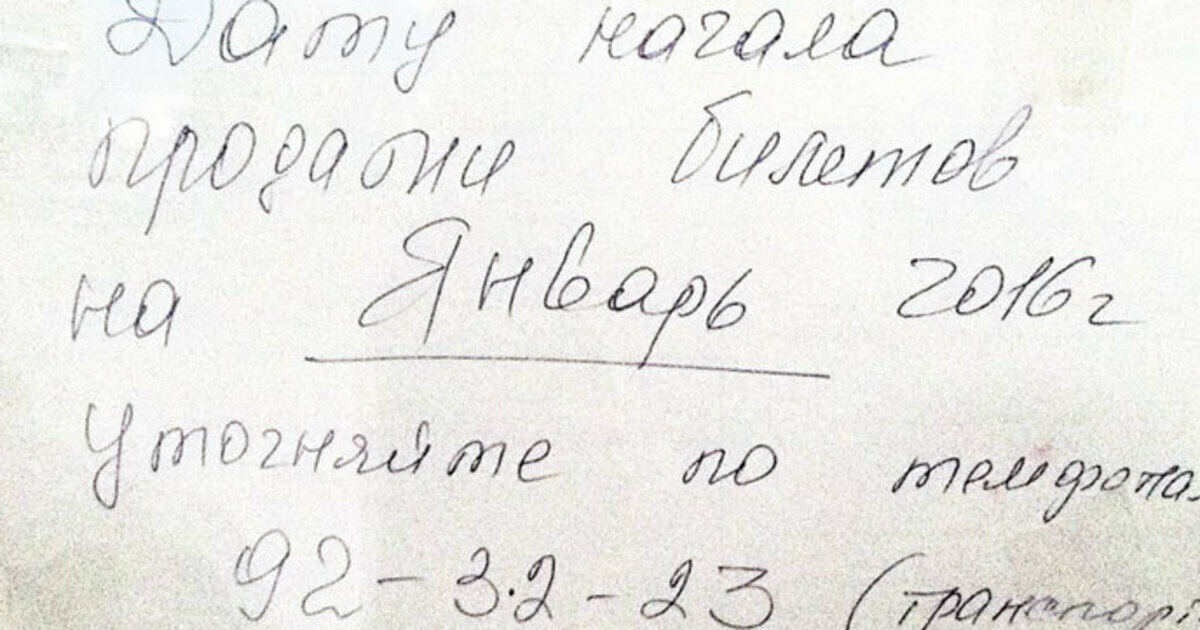 Дату начала
продажи билетов
на Январь 2016г
Уточняйте по телефона
92-32-23 (транспорт